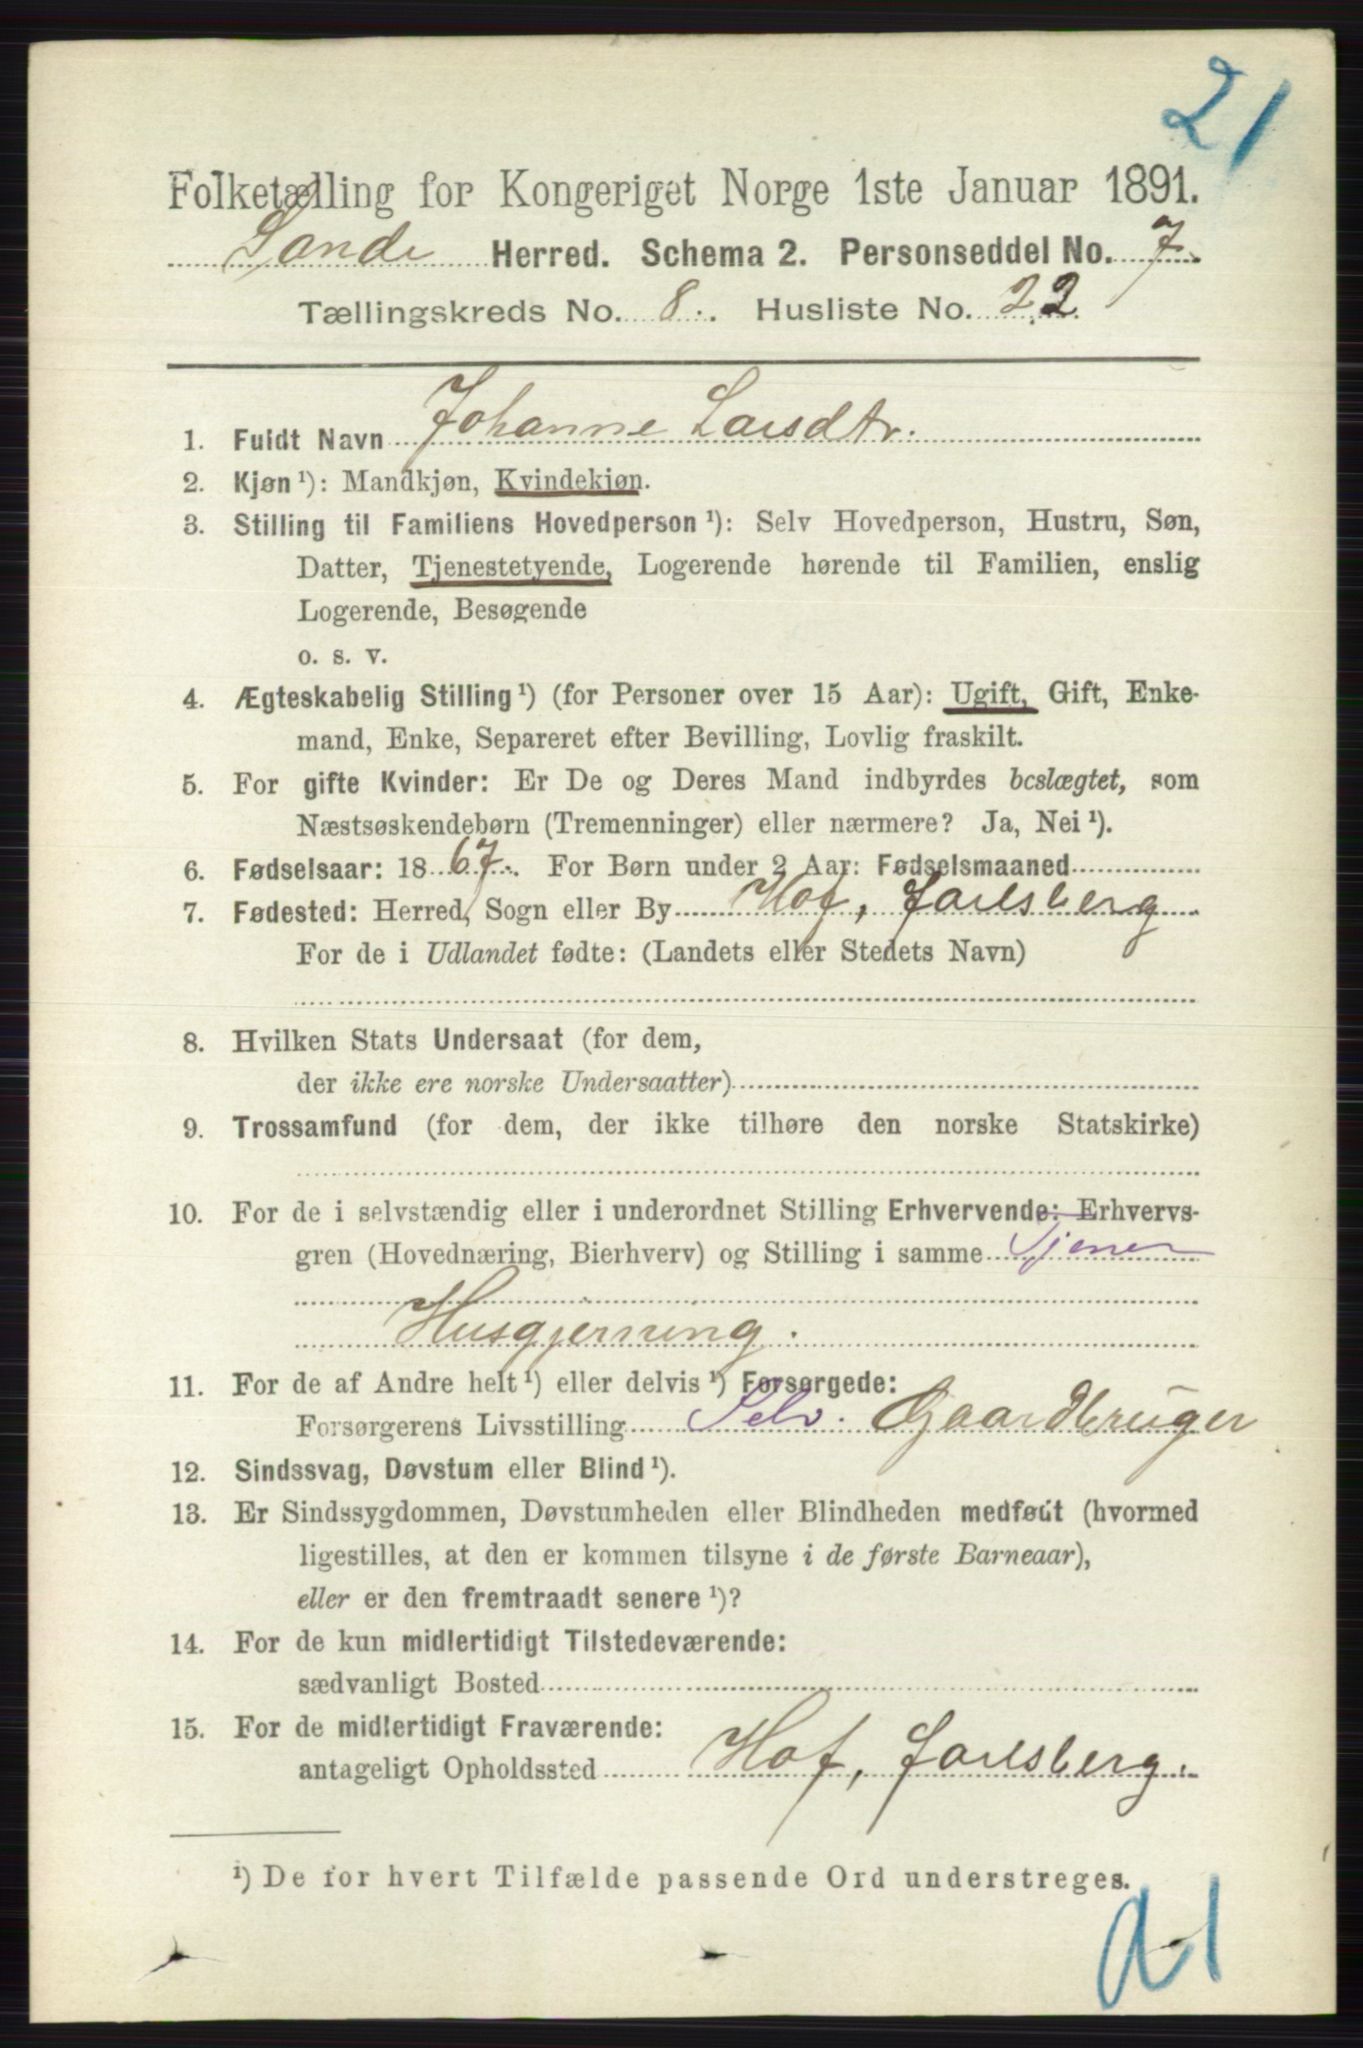 21
Folketælling for Kongeriget Norge 1ste Januar 1891.
Sande Herred. Schema 2. Personseddel No. 7.
Tællingskreds No. 8. Husliste No. 22.
1. Fuldt Navn Johanne Larsdtr.
2. Kjøn ¹): Mandkjøn, Kvindekjøn.
3. Stilling til Familiens Hovedperson ¹): Selv Hovedperson, Hustru, Søn,
Datter, Tjenestetyende, Logerende hørende til Familien, enslig
Logerende, Besøgende
o. s. v.
4. Ægteskabelig Stilling ¹) (for Personer over 15 Aar): Ugift, Gift, Enke-
mand, Enke, Separeret efter Bevilling, Lovlig fraskilt.
5. For gifte Kvinder: Er De og Deres Mand indbyrdes beslægtet, som
Næstsøskendebørn (Tremenninger) eller nærmere? Ja, Nei ¹).
6. Fødselsaar: 1867. For Børn under 2 Aar: Fødselsmaaned
7. Fødested: Herred, Sogn eller By Hof, Jarlsberg
For de i Udlandet fødte: (Landets eller Stedets Navn)
8. Hvilken Stats Undersaat (for dem,
der ikke ere norske Undersaatter)
9. Trossamfund (for dem, der ikke tilhøre den norske Statskirke)
10. For de i selvstændig eller i underordnet Stilling Erhvervende: Erhvervs-
gren (Hovednæring, Bierhverv) og Stilling i samme Tjener
Husgjerning.
11. For de af Andre helt ¹) eller delvis ¹) Forsørgede:
Forsørgerens Livsstilling Selv. Gaardbruger
12. Sindssvag, Døvstum eller Blind ¹).
13. Er Sindssygdommen, Døvstumheden eller Blindheden medfødt (hvormed
ligestilles, at den er kommen tilsyne i de første Barneaar),
eller er den fremtraadt senere ¹)?
14. For de kun midlertidigt Tilstedeværende:
sædvanligt Bosted
15. For de midlertidigt Fraværende:
antageligt Opholdssted Hof, Jarlsberg.
¹) De for hvert Tilfælde passende Ord understreges.